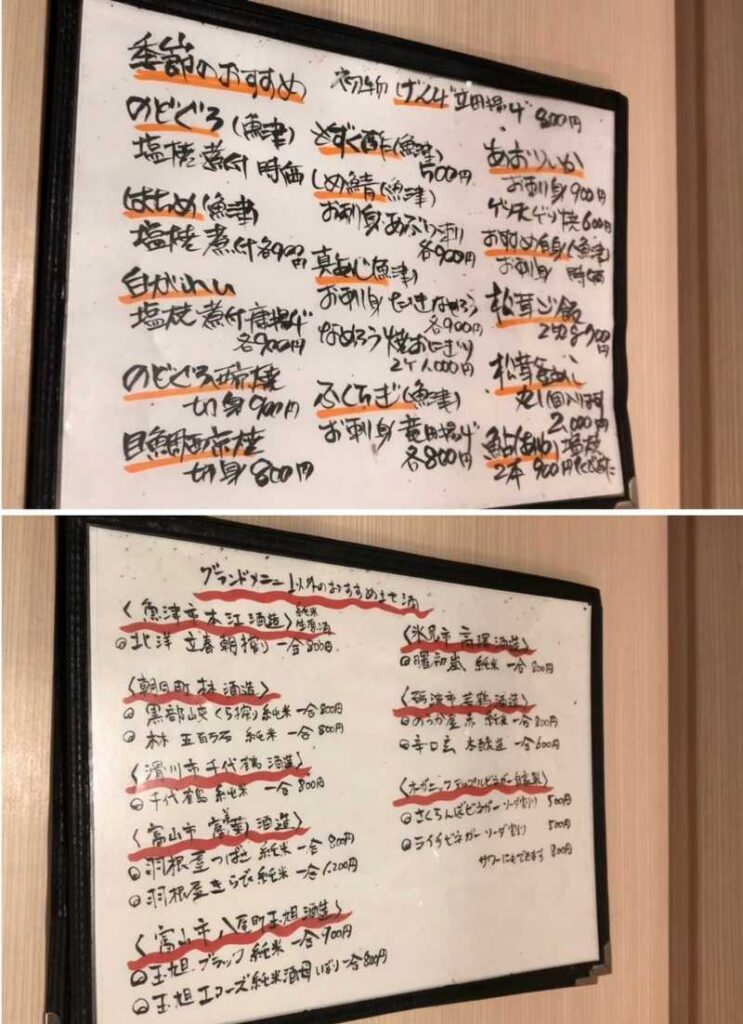 季節のおすすめ
初物 げんげ 立田揚げ 800円
のどぐろ(魚津)
塩焼 煮付 時価
はちめ(魚津)
塩焼 煮付 各900円
白がれい
塩焼 煮付 唐揚げ
各900円
のどぐろ西京焼
切身 900円
目鯛西京焼
切身 800円
もずく酢(魚津)
500円
しめ鯖(魚津)
お刺身 あぶり
各900円
真あじ(魚津)
お刺身 たたき なめろう
各900円
なめろう焼おにぎり
2ケ 1,000円
ふくらぎ(魚津)
お刺身 竜田揚げ
各800円
あおりいか
お刺身 900円
ゲソ天 ゲソ焼 600円
おすすめ白身(魚津)
お刺身 時価
松茸ご飯
松茸釜めし
2,000円
鮎(あゆ)塩焼
2本 900円
グランドメニュー以外のおすすめ地酒
〈魚津市 本江酒造〉純米生原酒
北洋 立春朝搾り 一合800円
〈朝日町 林酒造〉
黒部峡 くら搾り 純米 一合800円
林 五百万石 純米 一合800円
〈滑川市 千代鶴酒造〉
千代鶴 純米 一合800円
〈富山市 富美菊酒造〉
羽根屋 つばさ 純米 一合800円
羽根屋 きらび 純米 一合1,200円
〈富山市 八尾町 玉旭酒造〉
玉旭 ブラック 純米 一合900円
玉旭 エコーズ 純米酒母しぼり 一合800円
〈氷見市 高澤酒造〉
曙 初嵐 純米 一合800円
〈砺波市 若鶴酒造〉
純米 一合800円
辛口玄 本醸造 一合600円
〈オーガニックアップルビネガー自家製〉
さくらんぼビネガー ソーダ割り 500円
ライチビネガー ソーダ割り 500円
サワーにもできます 800円